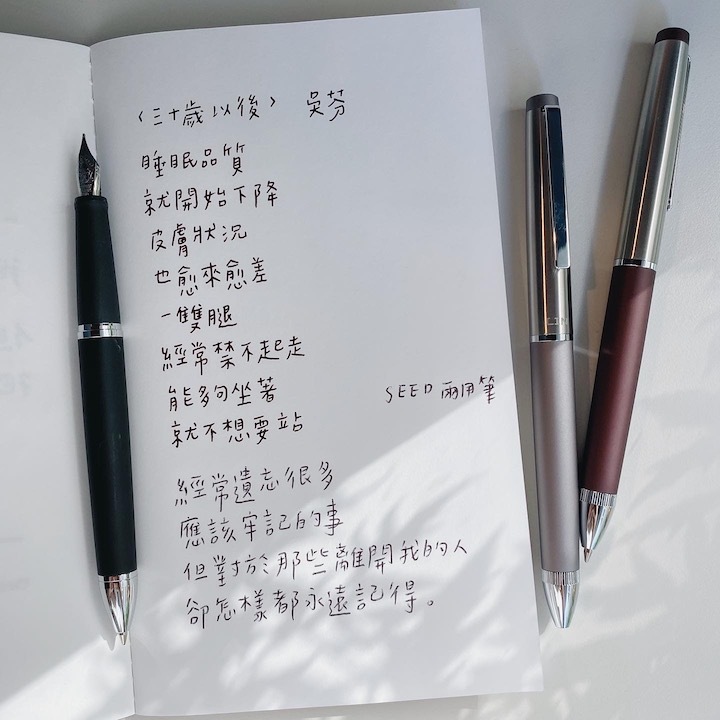 〈三十歲以後〉 吳芬
睡眠品質
就開始下降
皮膚狀況
也愈來愈差
一雙腿
經常禁不起走
能夠坐著
就不想要站
SEED 兩用筆
經常遺忘很多
應該牢記的事
但對於那些離開我的人
卻怎樣都永遠記得。